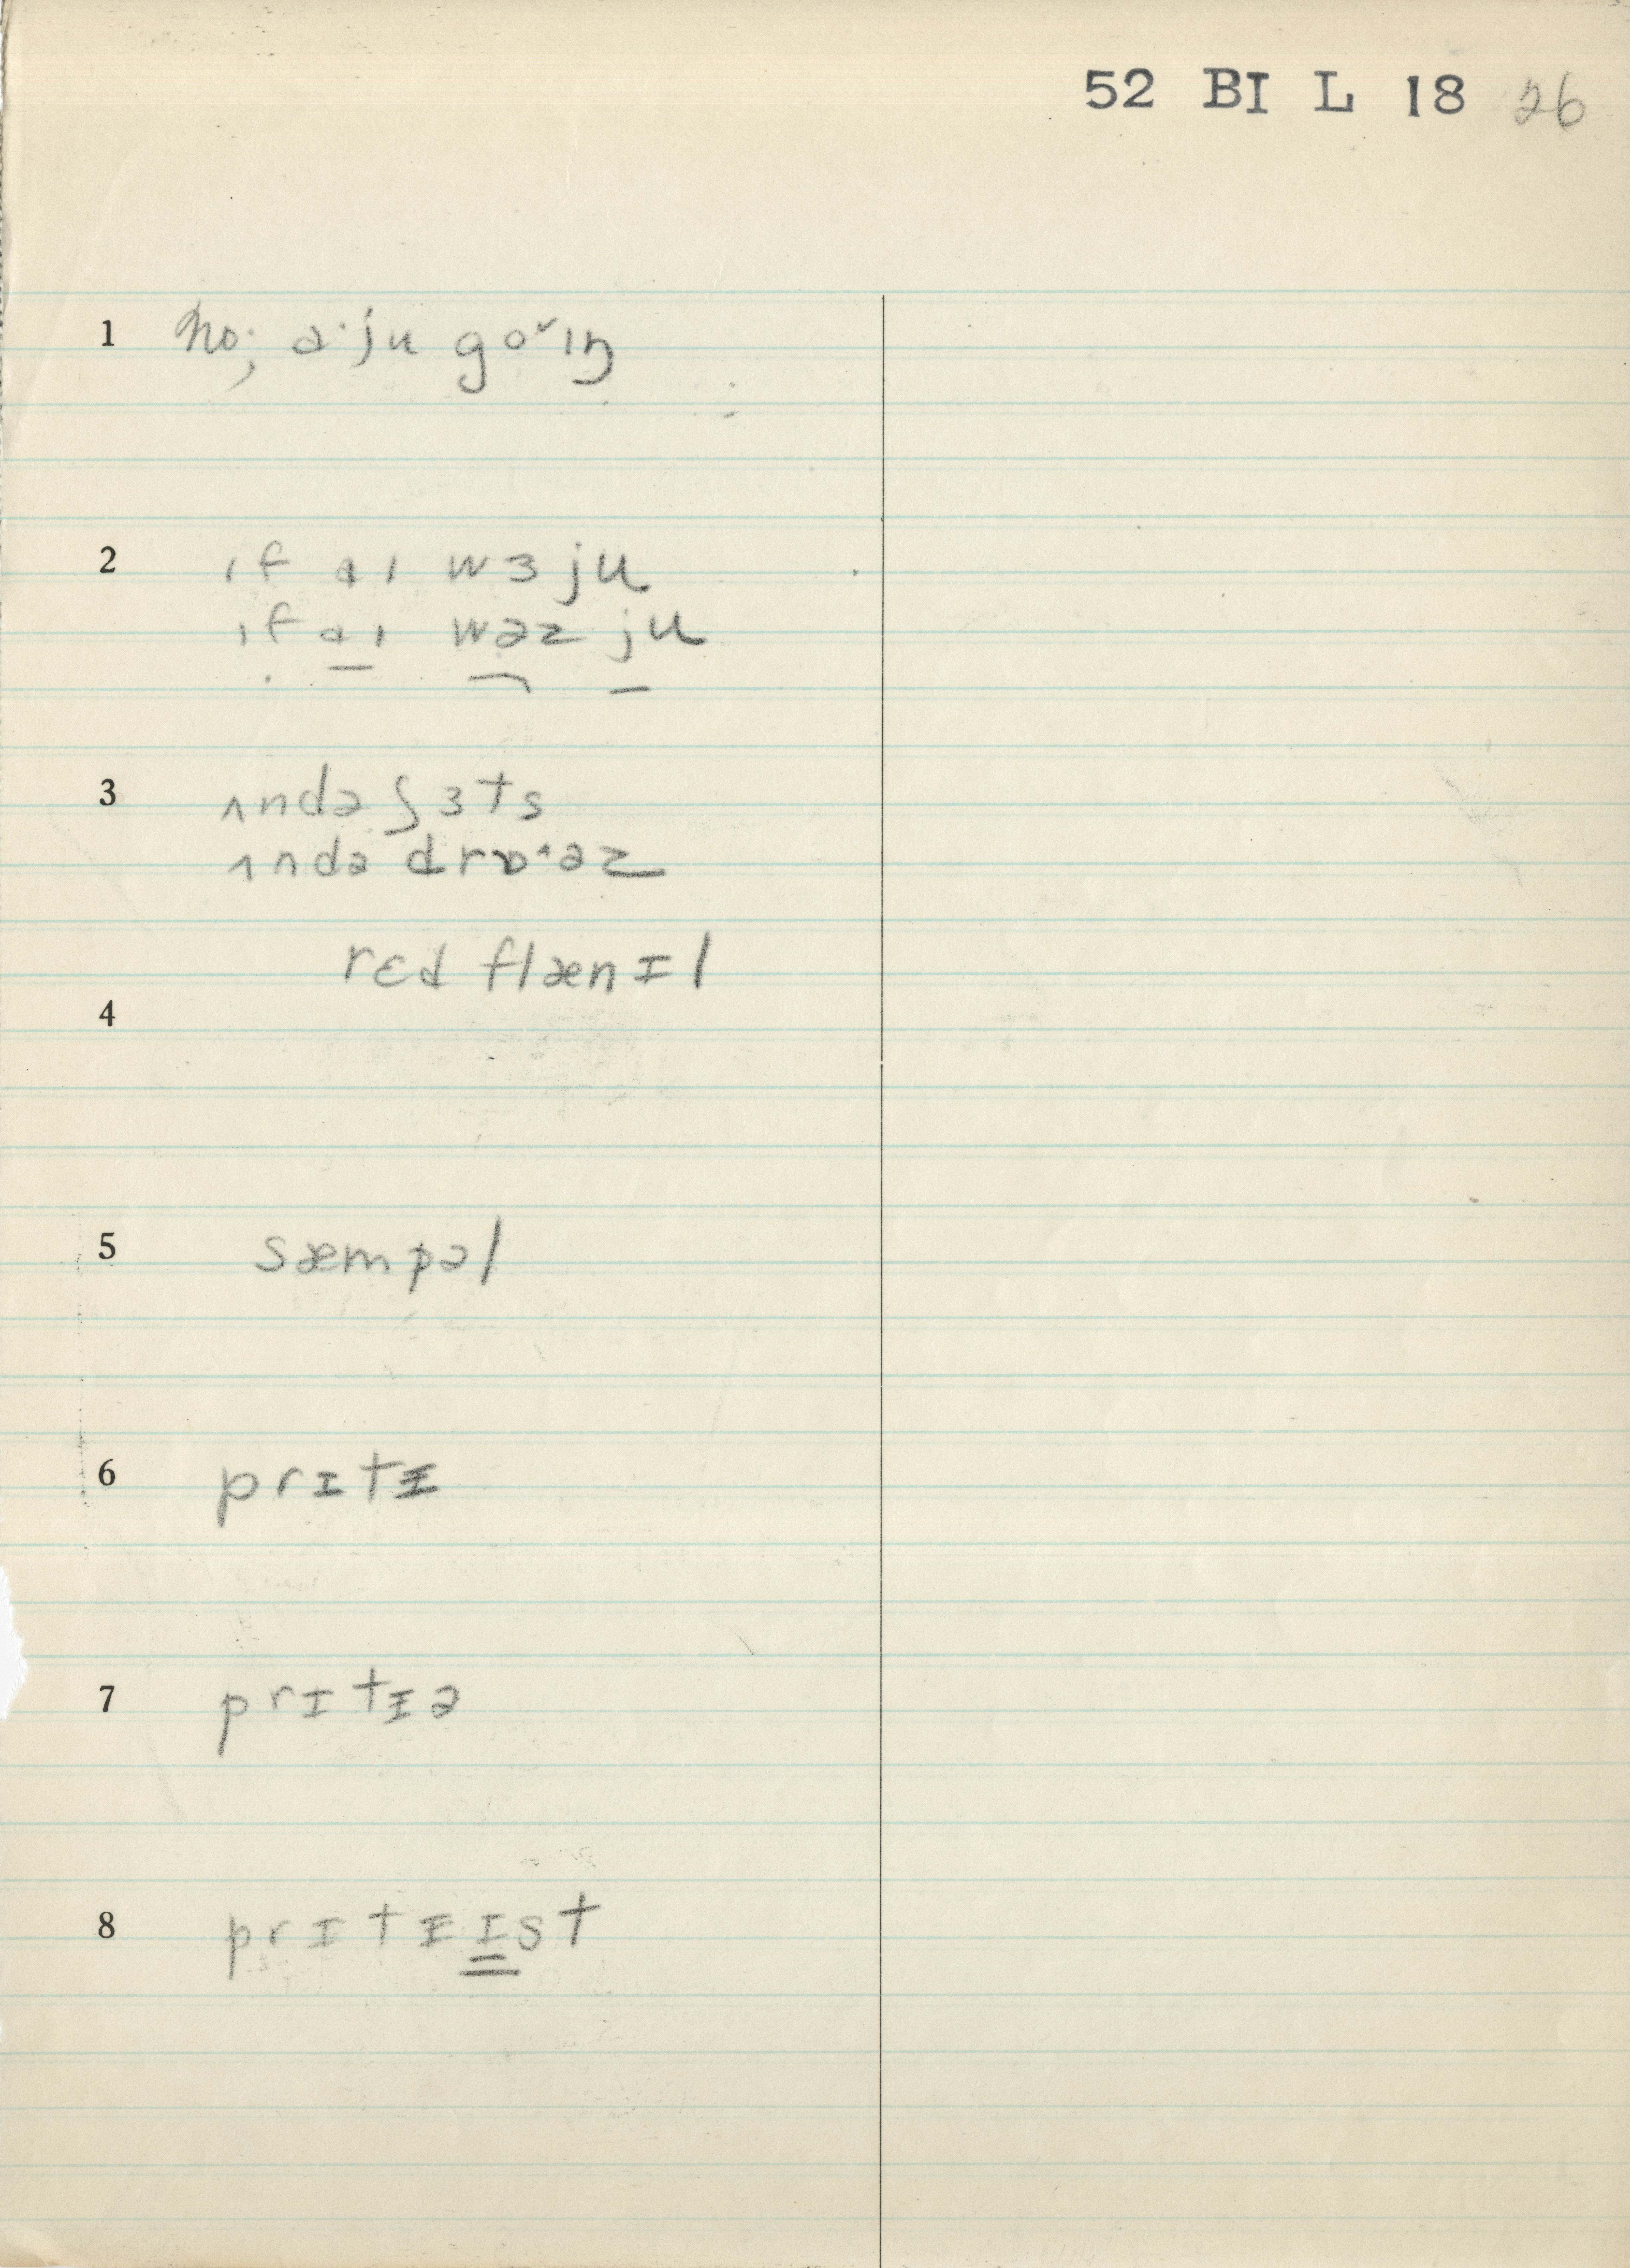 52 BI L 18 26
1 no; a·ju go˅ıŋ
2 ıf aı wɜ ju
ıf aı wəz ju
3 ʌndə ʃɜts
ʌndə drɒ˄əz
rɛd flænɪl
4
5 sæmpəl
6 prɪtɪ
7 prɪtɪə
8 prɪtɪɪst